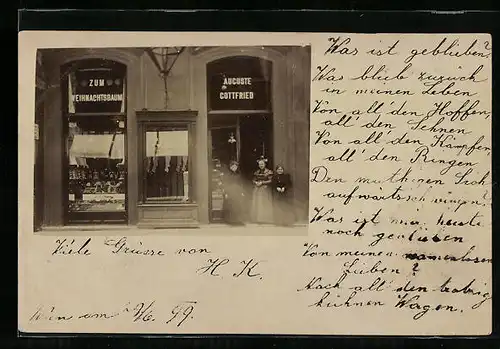 ZUM
WEIHNACHTSBAUM
AUGUSTE
GOTTFRIED
Was ist geblieben?
Was blieb zurück
in meinen Leben
Von all' den Hoffen,
all' den Sehnen
Von all' den Kämpfen,
all' den Ringen
Den muthigen Sich
aufwärtsschwingen
Was ist mir heute
noch geblieben
Von meinen namenlosen
Lieben?
Nach all' den
kühnen Wagen.
Viele Grüsse von
H K.
Wien am 99.